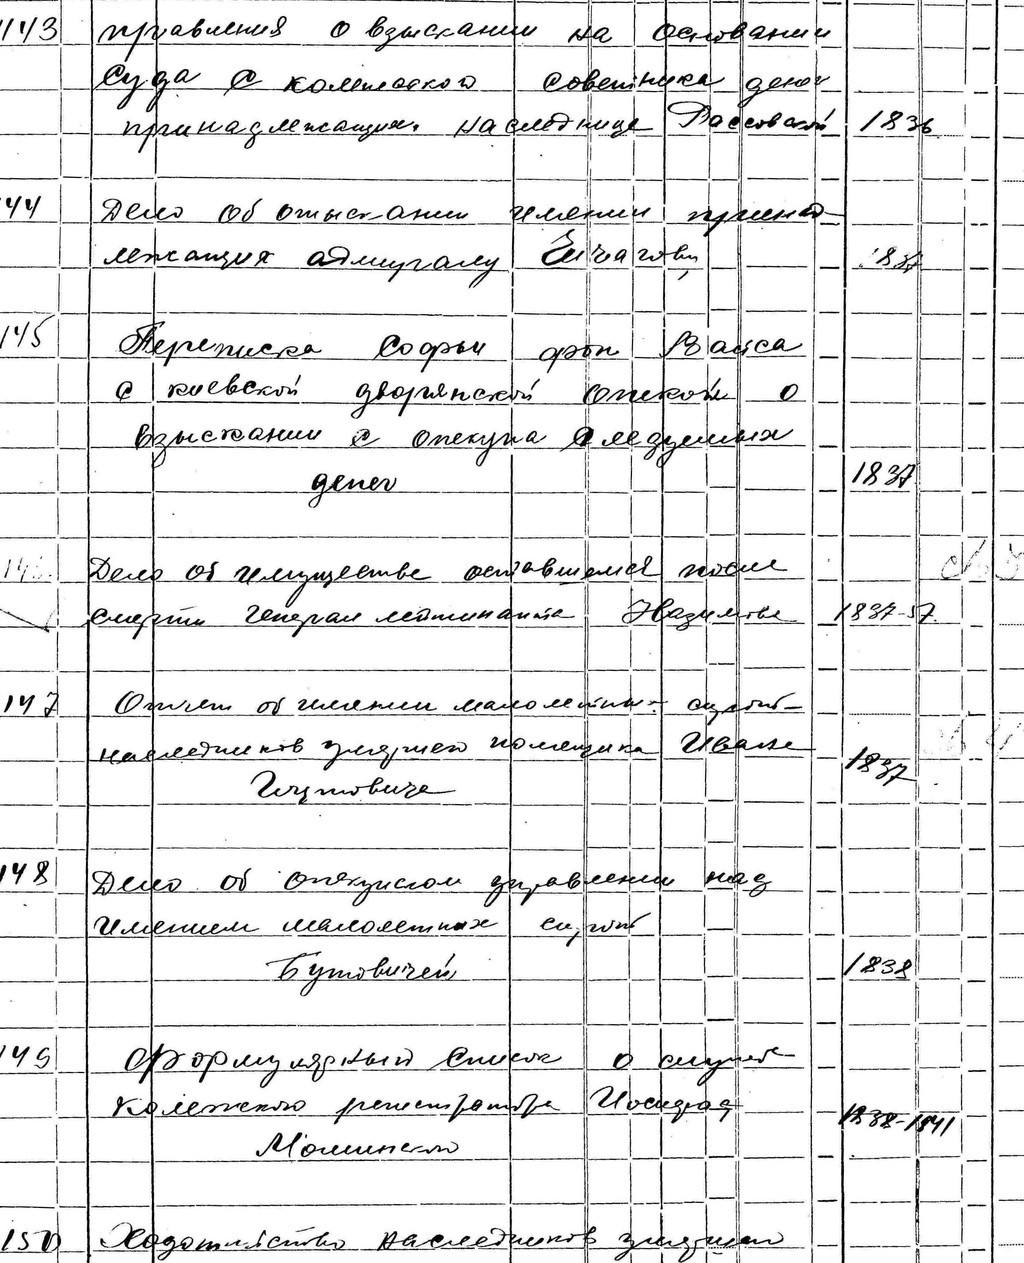 143 правления о взыскании на основании
суда с коллежского советника денег
принадлежащих наследнице Рассовской 1836
144 Дело об отыскании имении принад-
лежащих адмиралу Чичагову 1837
145 Переписка Софьи фон Вайса
с киевской дворянской опекой о
взыскании с опекуна следуемых
денег 1837
146 Дело об имуществе оставшемся после
смерти генерал лейтинанта Назимова 1837-57
147 Отчет об имении малолетных сирот-
наследников умершего помещика Ивана
1837
148 Дело об опекунском управлении над
имением малолетних сирот
Бутовичей 1838
149 Формулярный список о службе
колежского регистратора
1838-1841
150 Ходатайство наследников умершего